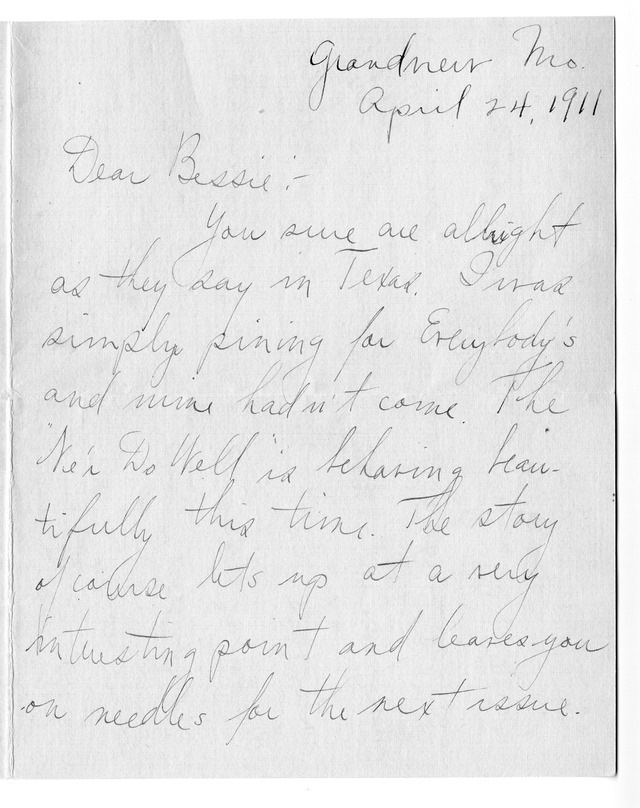 Grandview Mo.
April 24, 1911
Dear Bessie:-
You sure are allright
as they say in Texas. I was
simply pining for Everybody's
and mine hadn't come. The
"Ne'r Do Well" is behaving beau-
tifully this time. The story
of course lets up at a very
interesting point and leaves you
on needles for the next issue.